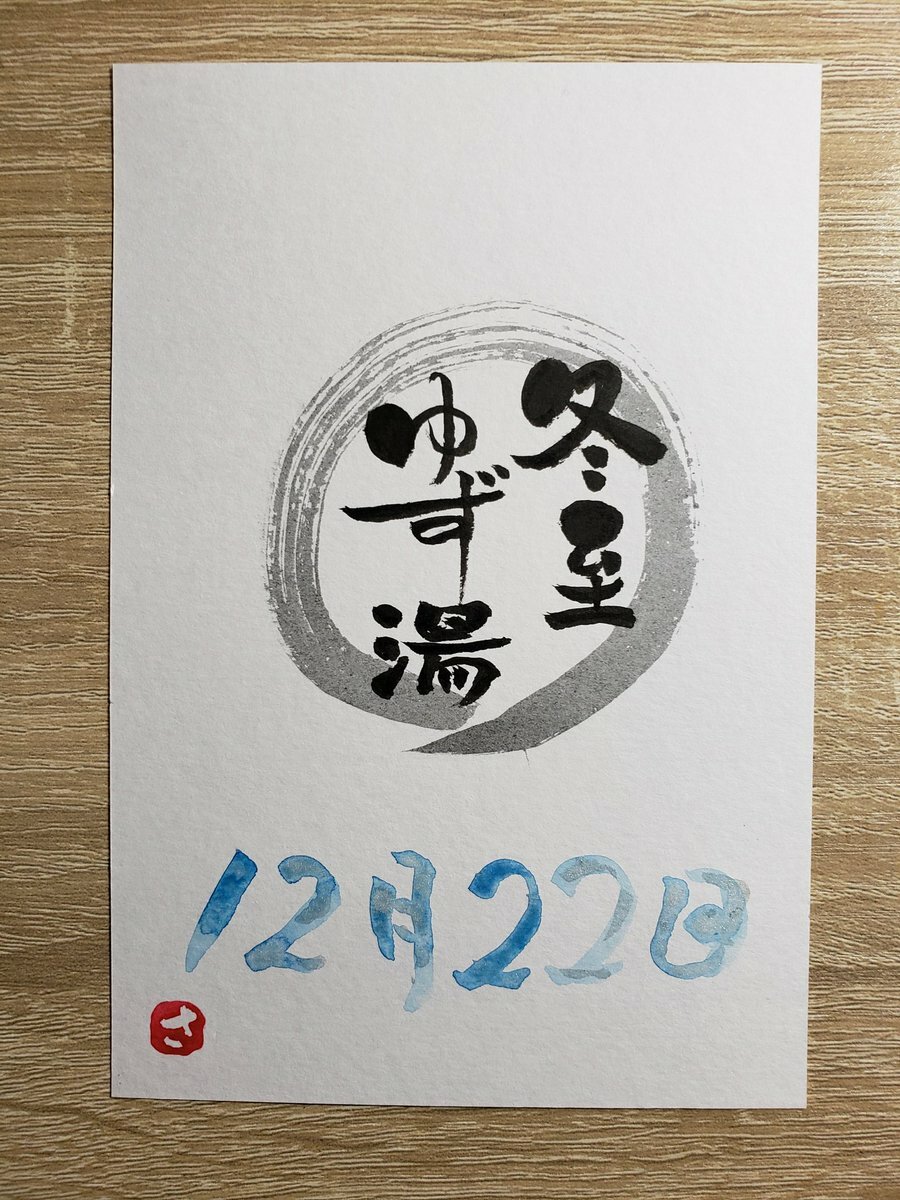 冬至
ゆず湯
12月22日
さ